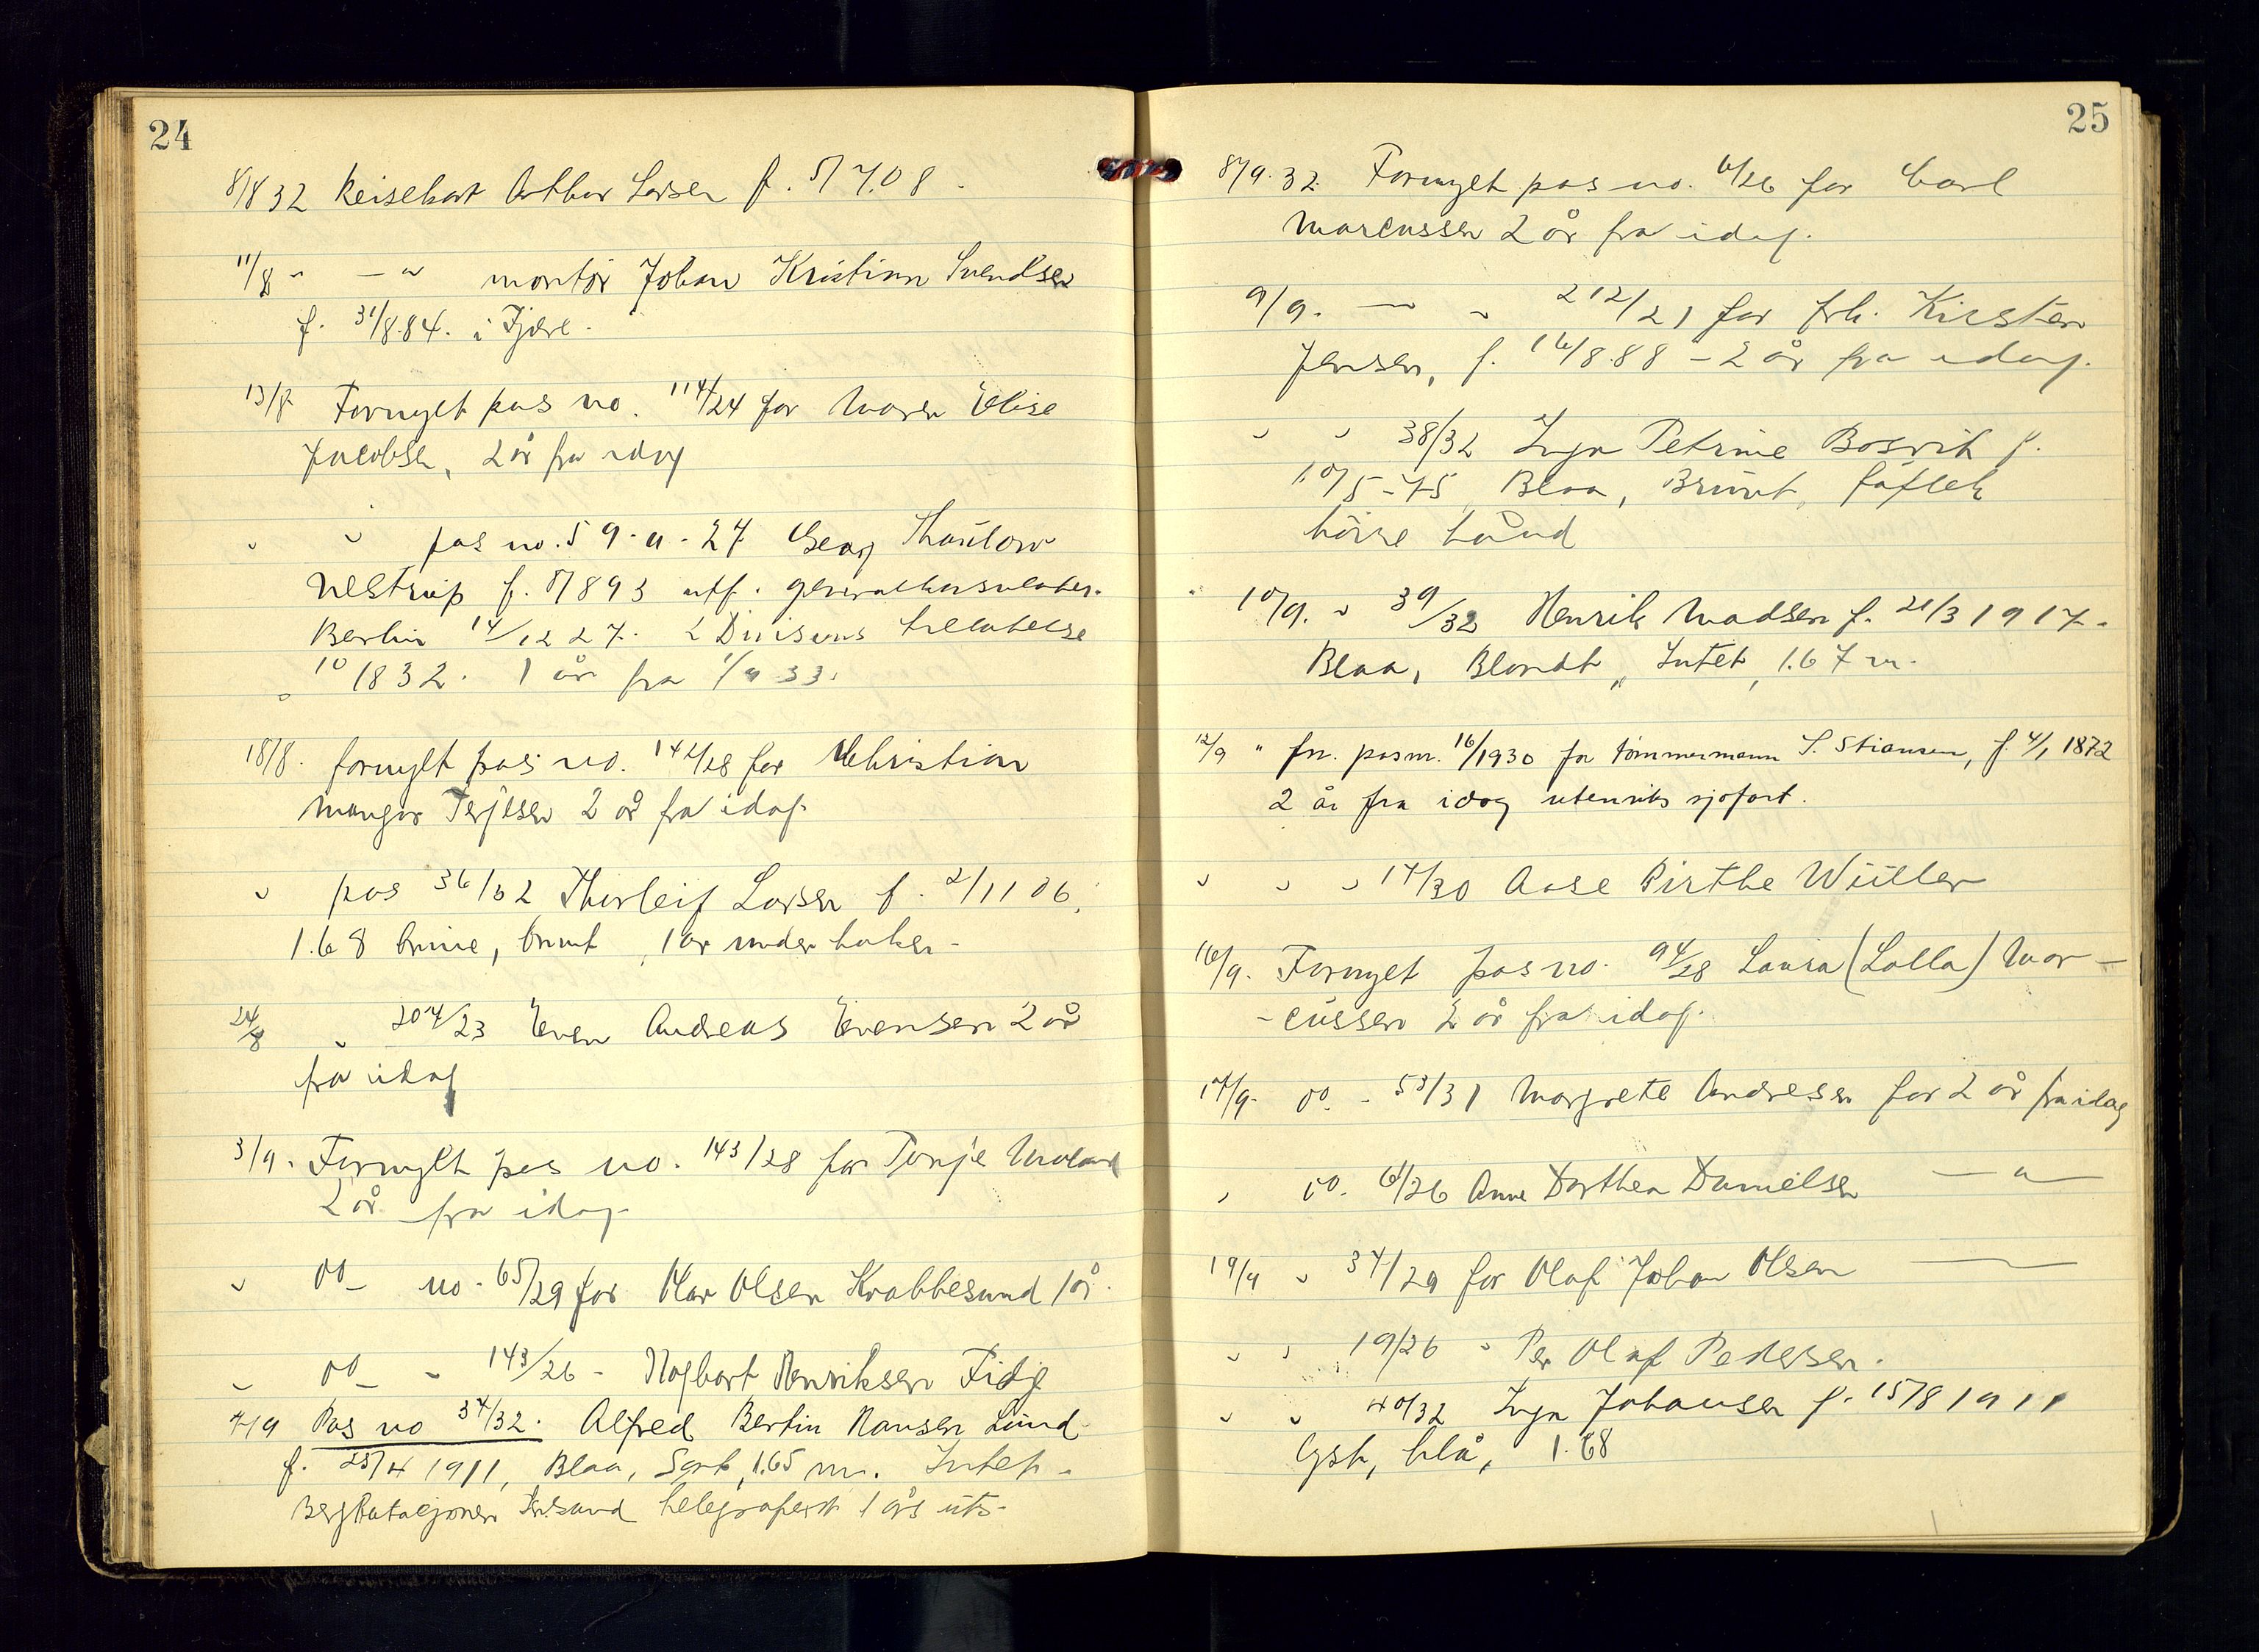 24
8/8 32 Reisekort Arthur Larsen f. 5/7.08.
11/8 " — " montör Johan Kristian Svendsen
f. 31/8.84. i Fjære.
13/8 Fornyet pas no. 114/24 for Maren Elise
Jacobsen, 2 år fra idag
" " pas no. 59-a-27 Georg Thaulow
f. 5/893 utf. generalkonsulatet
Berlin 14/12 27. 2 Divisions tillatelse
" 10/8 32. 1 år fra 1/9 33.
18/8. fornyet pas no. 142/28 for Christian
Terjesen 2 år fra idag.
" pas 36/32 Thorleif Larsen f. 2/11 06,
1.68 brune, brunt, 1 ar under haken.
24/8 " 204/23 Even Andreas Evensen 2 år
fra idag
3/9. Fornyet pas no. 143/28 for Terje Moland
2 år fra idag.
" do — no. 65/29 for Olav Olsen Krabbesund 1 år.
" do — " 143/26 - Hagbart Henriksen Fidje
7/9 Pas no 37/32. Alfred Bertin Hansen Lund
f. 25/4 1911, Blaa, Sort, 1.65 m. Intet.
Bergstasjonen Kr.sand telegrafist 1 års uts.
25
8/9.32. Fornyet pas no. 6/26 for Carl
Marcussen 2 år fra idag.
9/9. — " 212/21 for frk. Kirsten
Jensen, f. 16/8.88 - 2 år fra idag.
" " 38/32 Inga Petrine Bosvik f.
10/5-75 Blaa, Brunt, føflek
høire hånd
" 10/9. " 39/32 Henrik Madsen f. 21/3 1917.
Blaa, Blondt, Intet, 1.67 m.
12/9 " forn. pasnr. 16/1930 for tömmermann S. Stiansen, f. 4/1 1872
2 år fra idag utenriks sjöfart.
" " " 17/30 Aase Birthe Wüller
16/9. Fornyet pas no. 94/28 Laura (Lalla) Mar-
-cussen 2 år fra idag.
17/9. do. - 53/31 Margrete Andresen for 2 år fra idag
" do. 61/26 Anne Dorthea Danielsen — " —
19/9 " 37/29 for Olaf Johan Olsen —
" " 19/26 " Per Olaf Pedersen.
" " 40/32 Inga Johansen f. 15/8 1911
Gsk, blå, 1.68